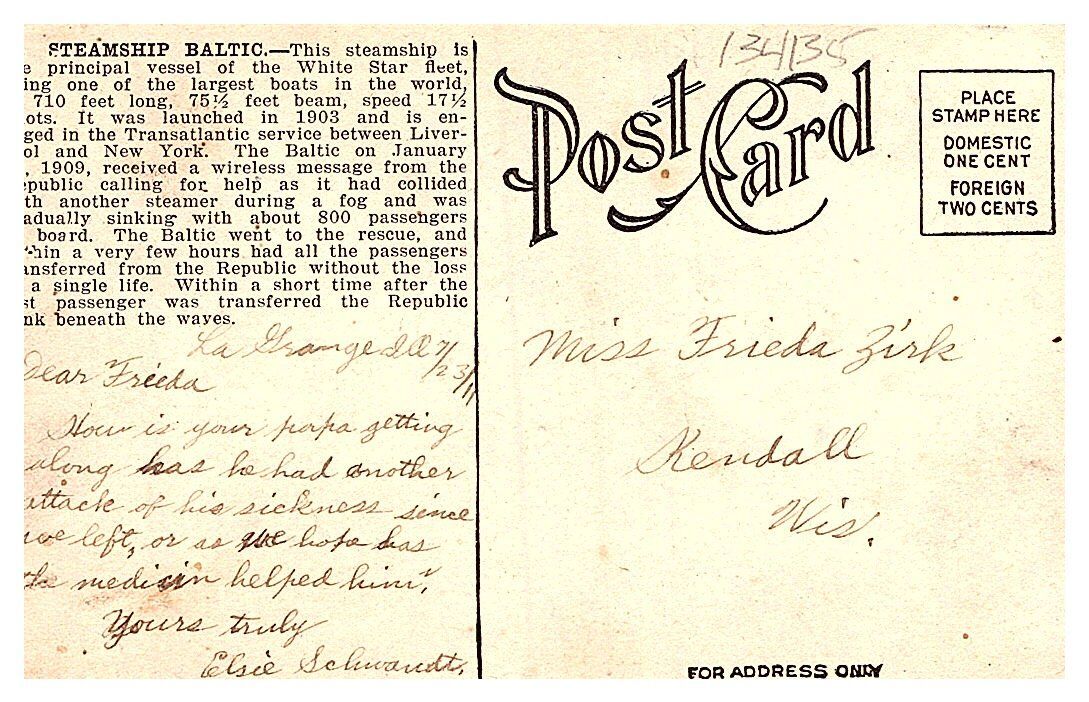 STEAMSHIP BALTIC.—This steamship is
e principal vessel of the White Star fleet,
ing one of the largest boats in the world,
710 feet long, 75½ feet beam, speed 17½
ots. It was launched in 1903 and is en-
ged in the Transatlantic service between Liver-
ol and New York. The Baltic on January
, 1909, received a wireless message from the
epublic calling for help as it had collided
th another steamer during a fog and was
adually sinking with about 800 passengers
board. The Baltic went to the rescue, and
thin a very few hours had all the passengers
ansferred from the Republic without the loss
a single life. Within a short time after the
st passenger was transferred the Republic
nk beneath the waves.
La Grange Ill 7/23/11
Dear Frieda
How is your papa getting
along has he had another
attack of his sickness since
we left, or as we hope has
the medicin helped him?
Yours truly
Elsie Schwandt.
134135
Post Card
PLACE
STAMP HERE
DOMESTIC
ONE CENT
FOREIGN
TWO CENTS
Miss Frieda Zirk
Kendall
Wis.
FOR ADDRESS ONLY